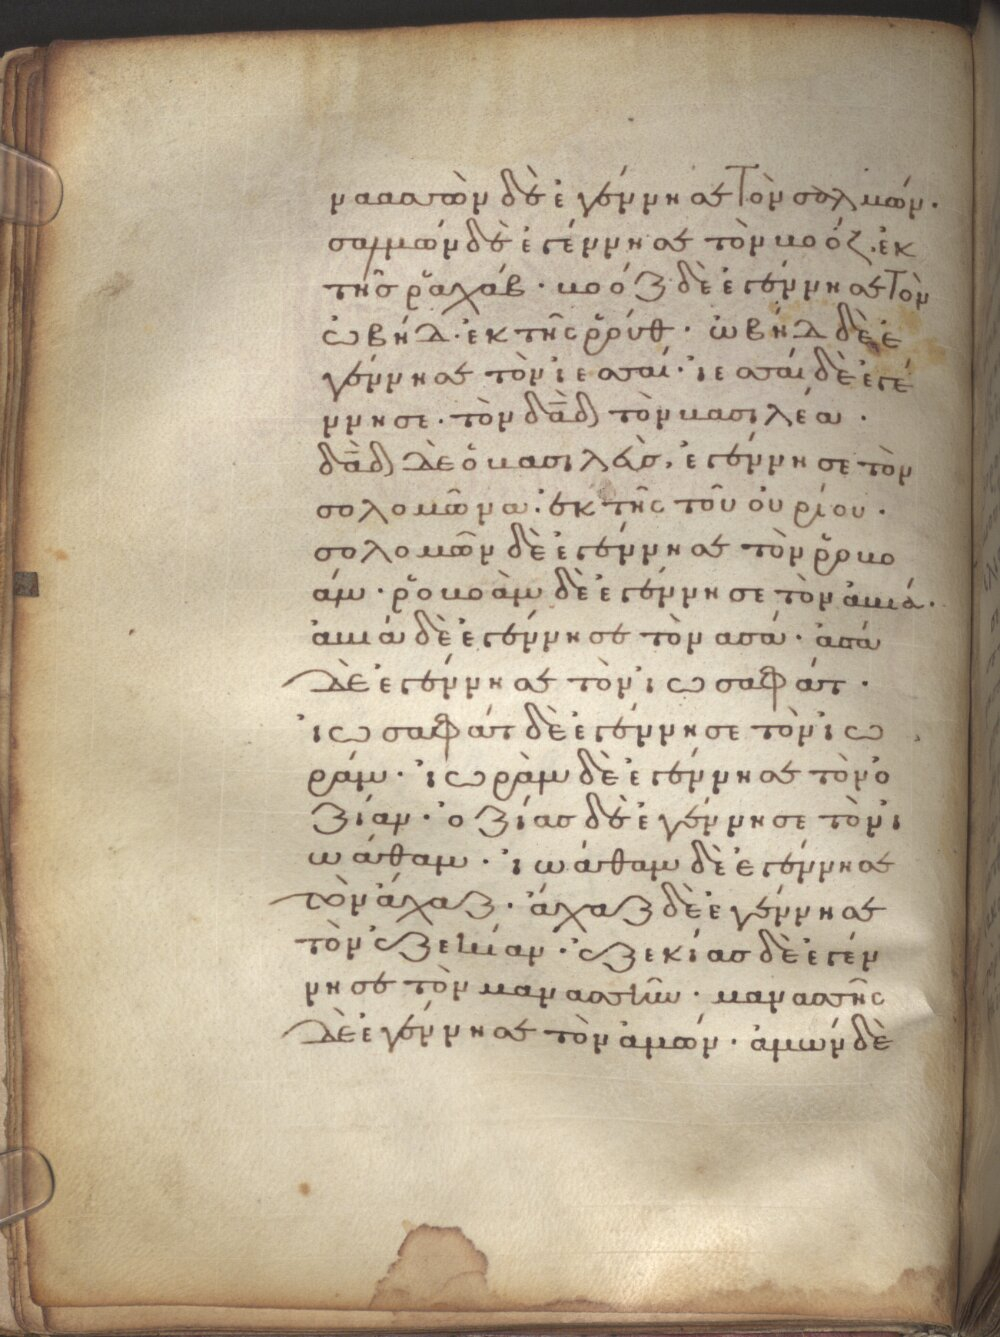 ναασσὼν δὲ ἐγέννησε τὸν σολμών.
σαλμών δὲ ἐγέννησε τὸν βοόζ. ἐκ
τῆς ῥαχάβ· βοόζ δὲ ἐγέννησε τὸν
ὠβήδ· ἐκ τῆς ῥούθ· ὠβὴδ δὲ ἐ
γέννησε τὸν ἰεσσαί· ἰεσσαί δὲ ἐγέ
ννησε· τὸν δᾱδ τὸν βασιλέα·
δᾱδ δὲ ὁ βασιλεὺσ, ἐγέννησε τὸν
σολομῶνα· ἐκ τῆς τοῦ οὐρίου·
σολομῶν δὲ ἐγέννησε τὸν ῥοβο
άμ· ῥοβοὰμ δὲ ἐγέννησε τὸν ἀβιά·
ἀβιά δὲ ἐγέννησε τὸν ασά· ἀσά
δὲ ἐγέννησε τὸν ἰωσαφάτ·
ἰωσαφάτ δὲ ἐγέννησε τὸν ἰω
ράμ· ἰωρὰμ δὲ ἐγέννησε τὸν ὀ
ζίαν· ὀζίας δὲ ἐγέννησε τὸν ἰ
ωάθαμ· ἰωάθαμ δὲ ἐγέννησε
τὸν ἀχαζ· ἀχαζ δὲ ἐγέννησε
τὸν ἐζεκίαν· ἐζεκίας δὲ ἐγέν
νησε τὸν μανασσῆν· μανασσῆς
δὲ ἐγέννησε τὸν ἀμών· ἀμών δὲ